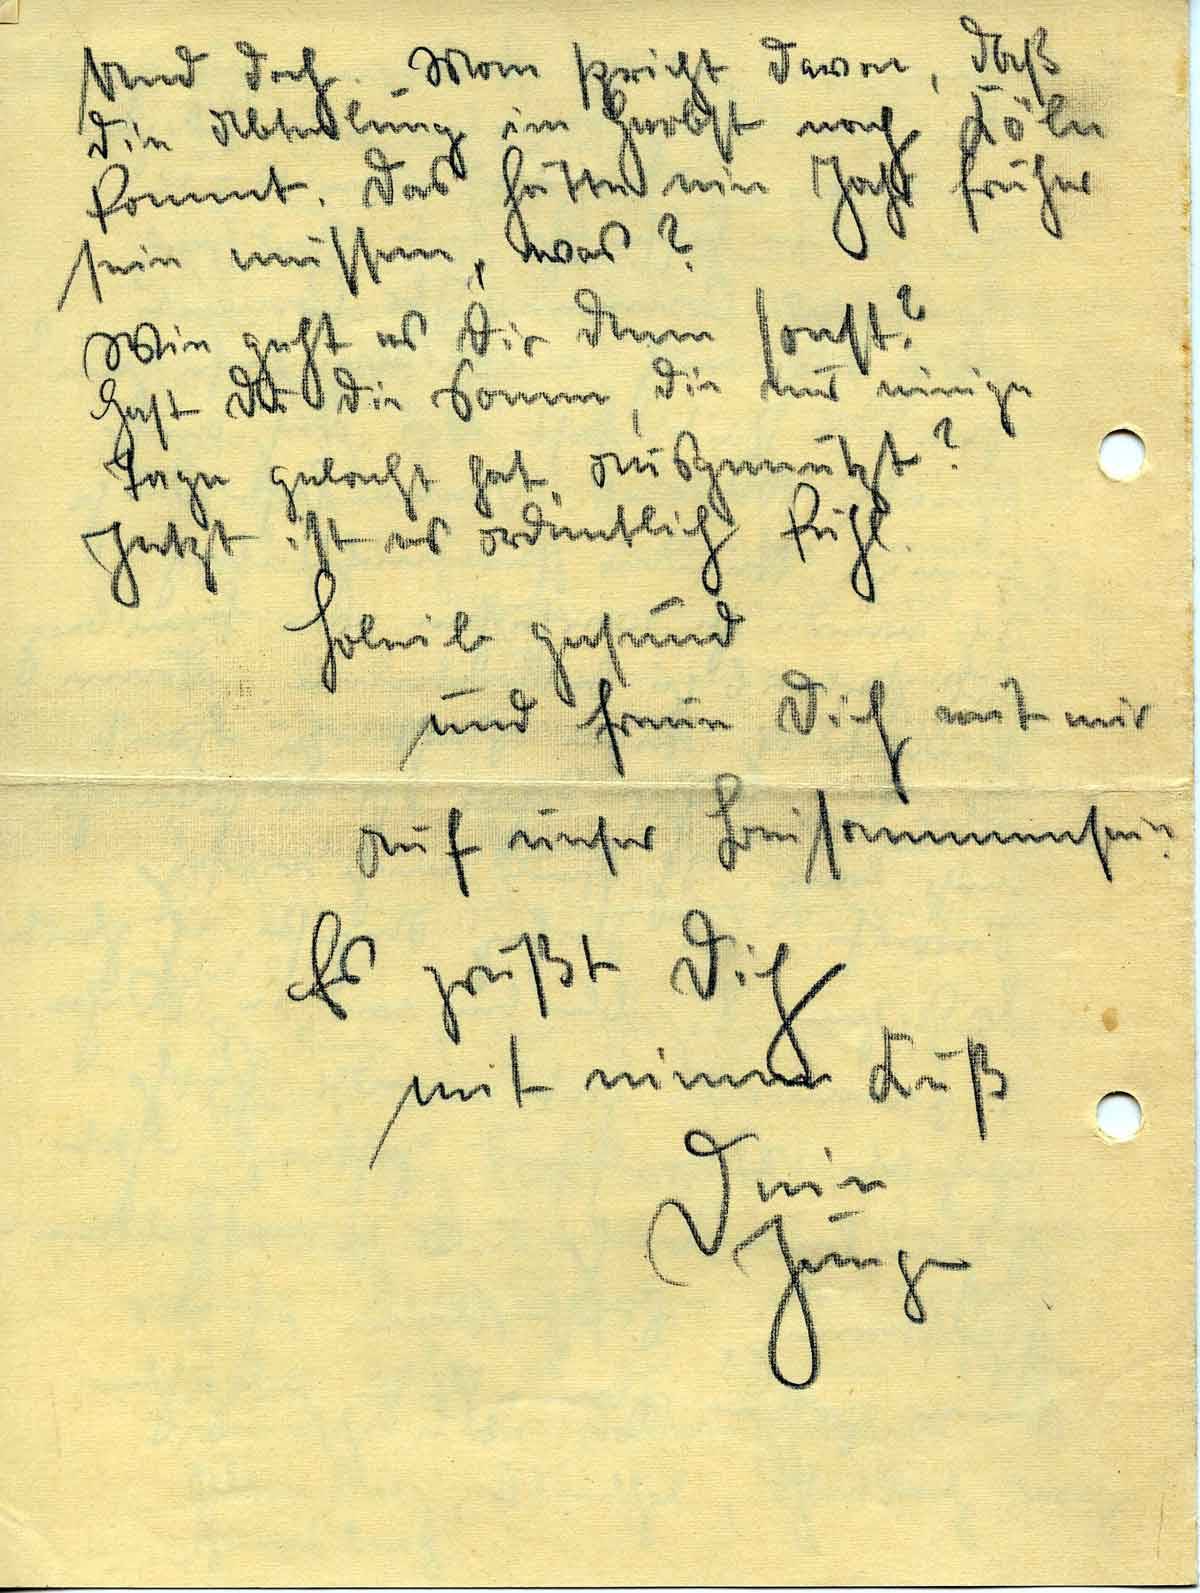 Und doch. Man spricht davon, daß
die Abteilung im Herbst nach Köln
kommt. Das hätte ein Jahr früher
sein müssen, was?
Wie geht es Dir denn sonst?
Hast Du die Sonne, die uns einige
Tage gelacht hat, ausgenützt?
Jetzt ist es ordentlich kühl.
Bleib gesund
und freue Dich mit mir
auf unser Beisammensein.
Es grüßt Dich
mit einem Kuß
Dein
Junge